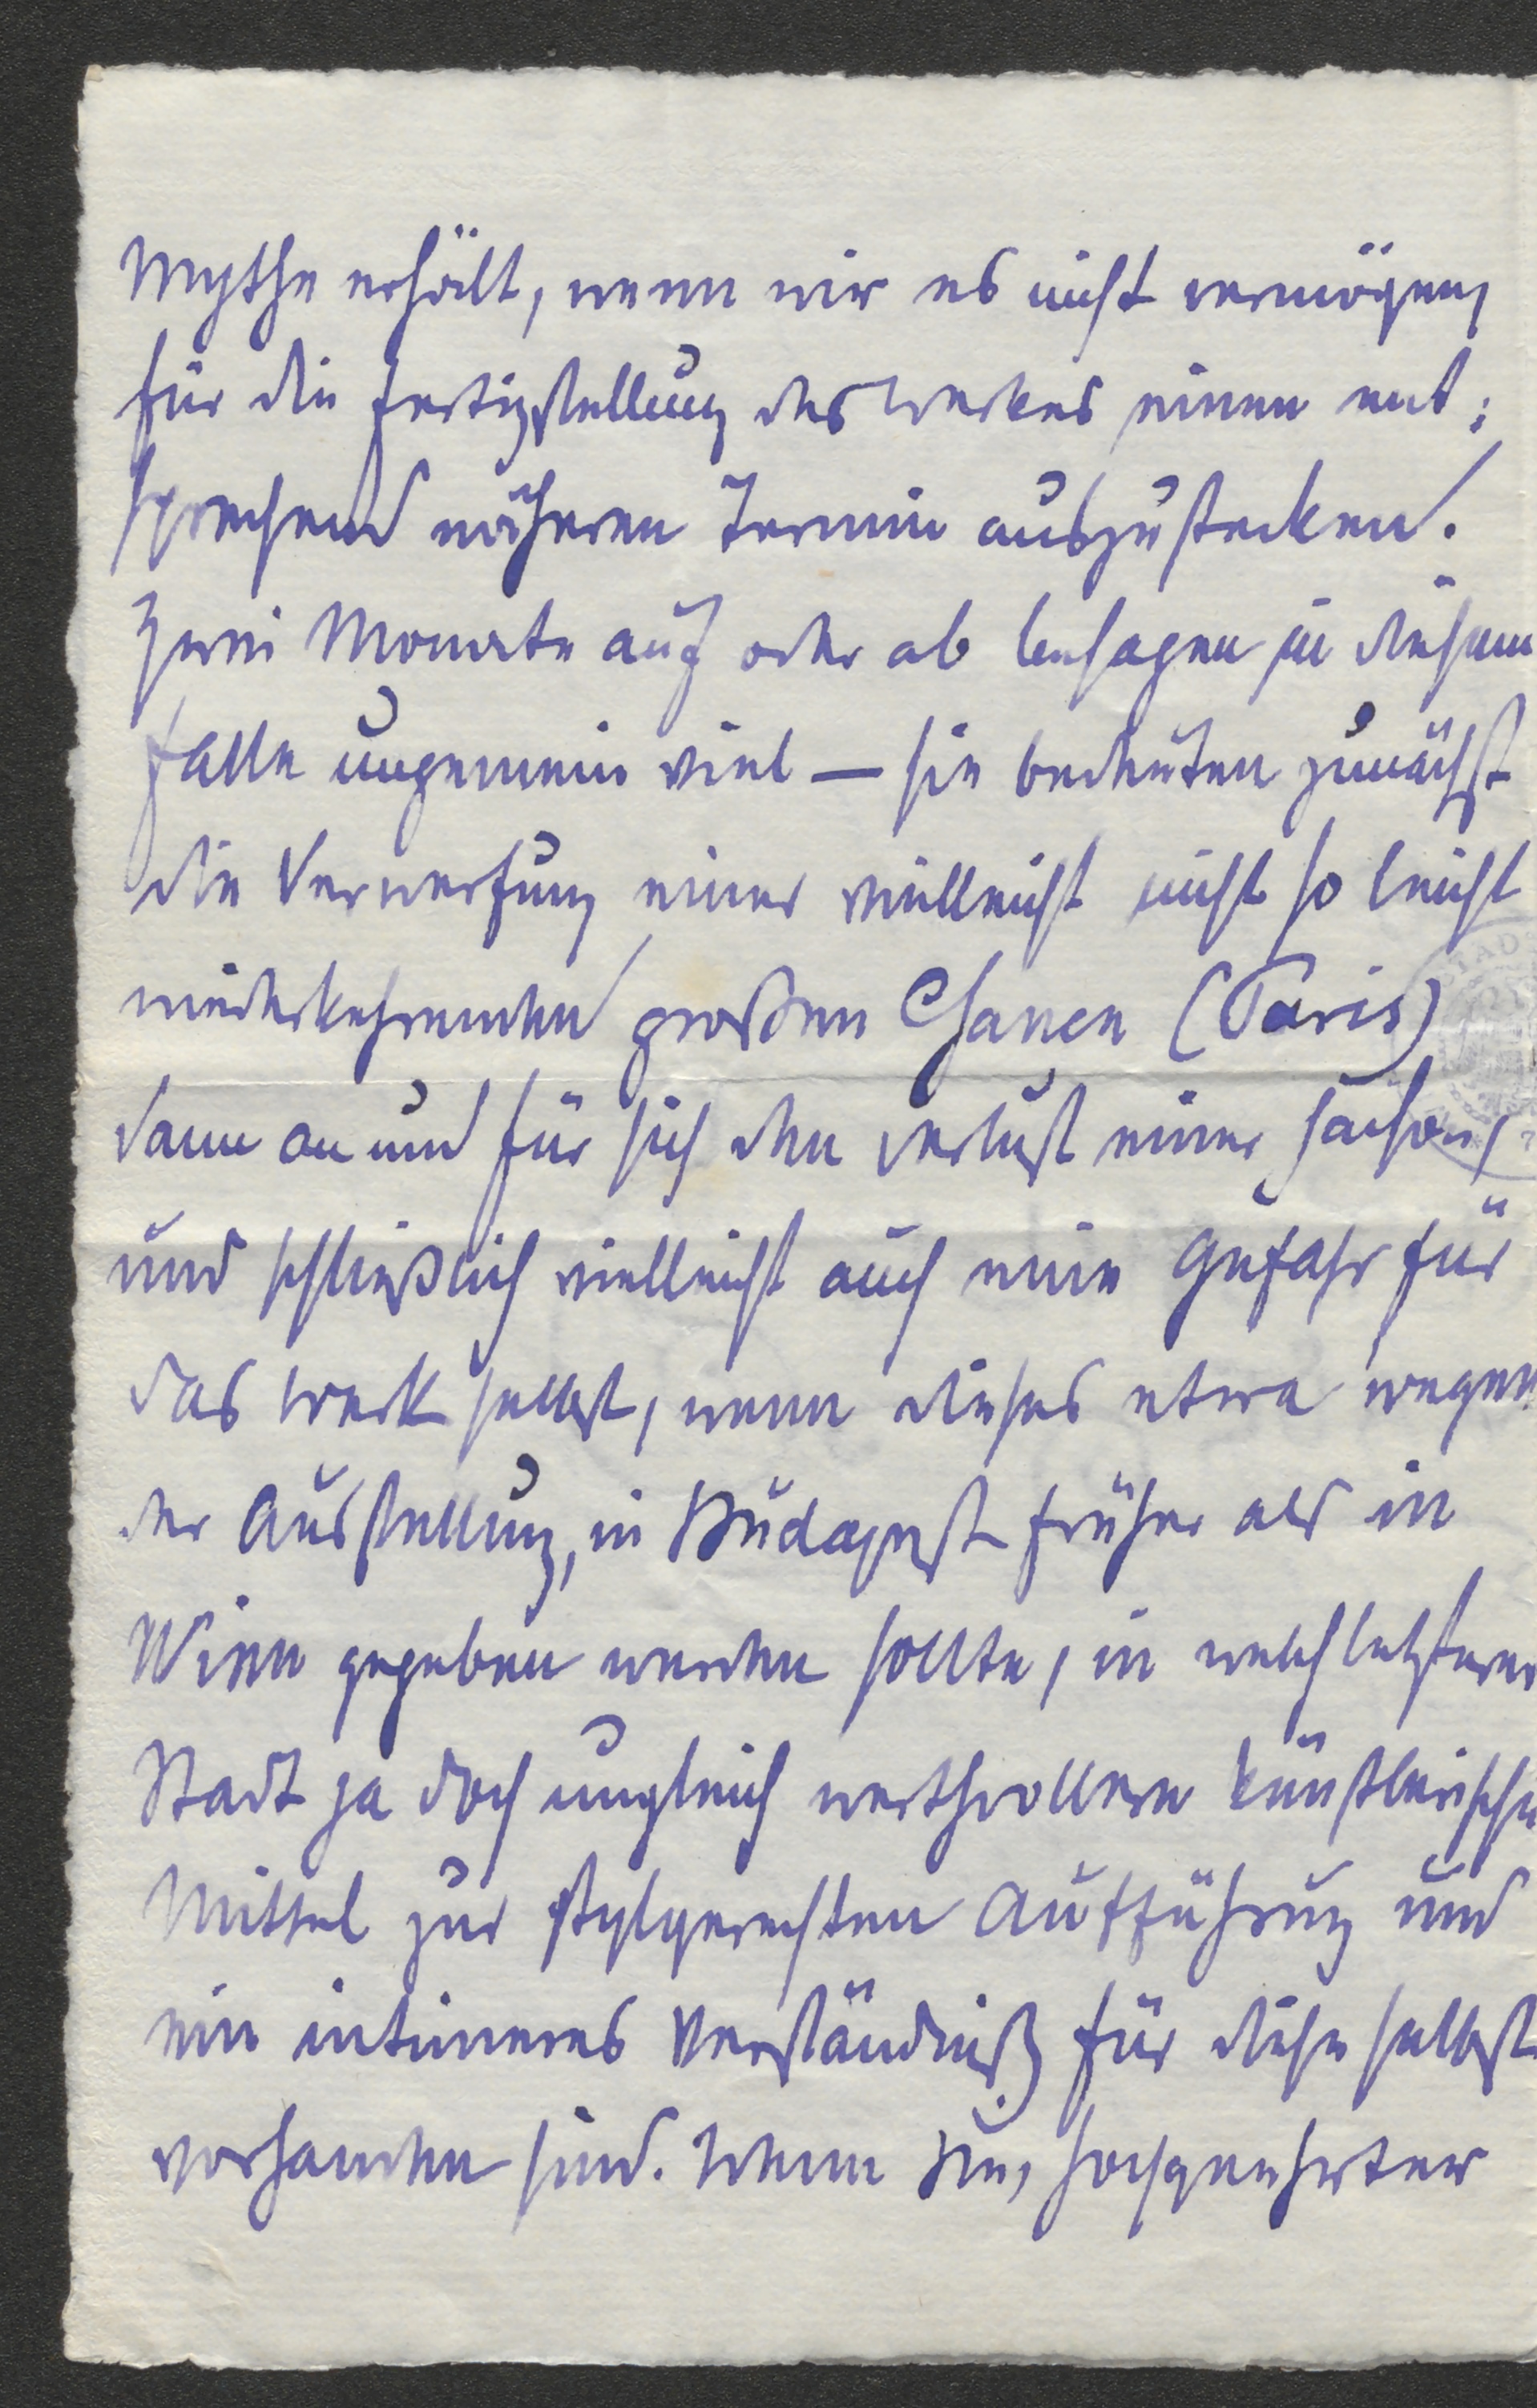 Mythe erhält, wenn wir es nicht vermögen,
für die Fertigstellung des Werkes einen ent:
sprechend näheren Termin auszustecken.
Zwei Monate auf oder ab besagen in diesem
Falle ungemein viel — sie bedeuten zunächst
die Verwerfung einer vielleicht nicht so leicht
wiederkehrenden großen Chance (Paris)
dann an und für sich den Verlust einer Saison,
und schließlich vielleicht auch eine Gefahr für
das Werk selbst, wenn dieses etwa wegen
der Ausstellung, in Budapest früher als in
Wien gegeben werden sollte, in welch letzterer
Stadt ja doch ungleich werthvollere künstlerische
Mittel zur stylgerechten Aufführung und
ein intimeres Verständniß für diese selbst
vorhanden sind. Wenn Sie, hochgeehrter